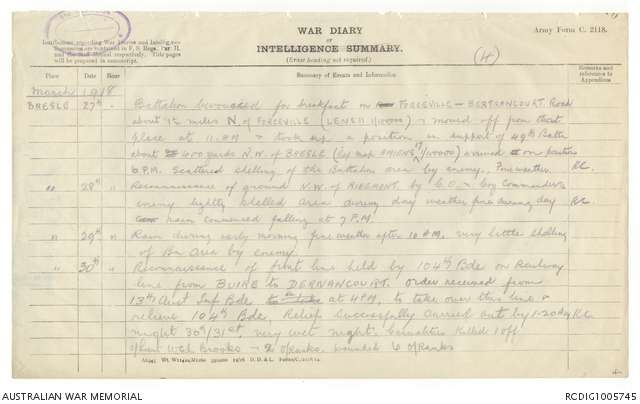 Army Form C. 2118.
WAR DIARY
or
INTELLIGENCE SUMMARY.
(Erase heading not required.)
(4)
Instructions regarding War Diaries and Intelligence
Summaries are contained in F. S. Regs., Part II.
and the Staff Manual respectively. Title pages
will be prepared in manuscript.
Place Date Hour Summary of Events and Information Remarks and references to Appendices
March 1918
BRESLE 27th - Battalion bivouaced for breakfast on FORCEVILLE - BERTRANCOURT Road
about miles N of FORCEVILLE (LENS 11 1/100000) & moved off from that
place at 11. AM & took up a position in support of 49th Battn
about 600 yards N.W. of BRESLE (Ref map AMIENS 17 1/100000) arrived on position
6 P.M. Scattered shelling of the Battalion area by enemy. Fine weather. RC.
" 28th " Reconnaissance of ground N.W. of RIBEMONT by C.O. & Coy Commanders
enemy lightly shelled area during day weather fine during day RC.
rain commenced falling at 7 P.M.
" 29th " Rain during early morning fine weather after 10 AM. very little shelling
of Bn area by enemy.
" 30th " Reconnaissance of front line held by 104th Bde on Railway
line from BUIRE to DERNANCOURT. Order received from
13th Aust Inf Bde at 4 PM, to take over this line &
relieve 104th Bde, Relief successfully carried out by RC.
night 30th/31st, very wet night. Casualties Killed 1 Off
Brooks - 2 O/Ranks, wounded 6 O/Ranks
AUSTRALIAN WAR MEMORIAL
RCDIG1005745